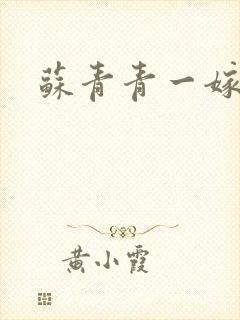 蘇青青一嫁
黄小霞